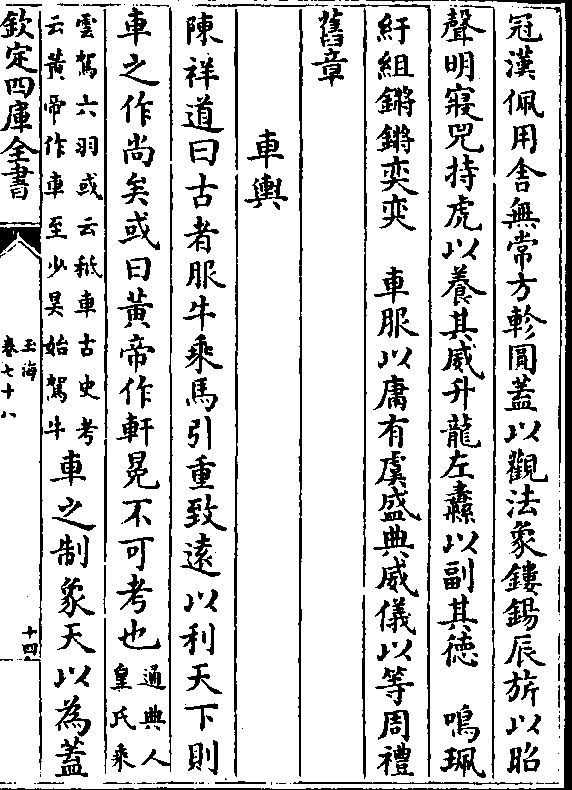 冠漢佩用舎無常方軫圓蓋以觀法象鏤錫辰旂以昭
聲明寢兕持虎以養其威升龍左纛以副其徳　鳴珮
紆組鏘鏘奕奕　車服以庸有虞盛典威儀以等周禮
舊章
車輿
陳祥道曰古者服牛乘馬引重致遠以利天下則
車之作尚矣或曰黃帝作軒冕不可考也通典人
皇氏乘
雲駕六羽或云秪車古史考
云黃帝作車至少昊始駕牛車之制象天以為蓋
欽定四庫全書
玉海
卷七十八
十四